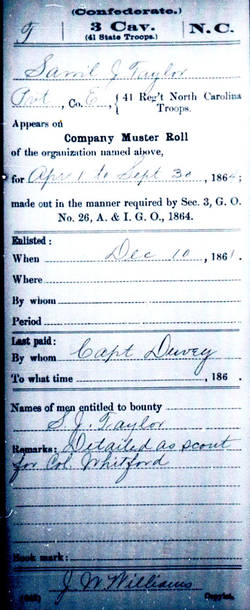 (Confederate.)
T 3 Cav. N.C.
(41 State Troops.)
Sam'l J Taylor
Pvt, Co. E, { 41 Reg't North Carolina Troops.
Appears on
Company Muster Roll
of the organization named above,
for Apr 1 to Sept 30, 1864;
made out in the manner required by Sec. 3, G. O.
No. 26, A. & I. G. O., 1864.
Enlisted:
When Dec 10, 1861.
Where
By whom
Period
Last paid:
By whom Capt
To what time , 186 .
Names of men entitled to bounty
S. J. Taylor
Remarks: Detailed as scout
for Col. Whitford
Book mark:
J W Williams
Copyist.